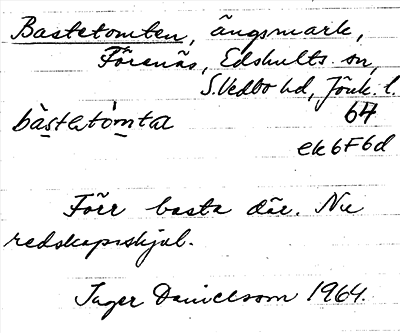 Bastetomten, ängsmark,
Förenäs, Edshults sn,
S. Vedbo hd, Jönk. l.
bàstetòmta 64
ek6F6d
Förr basta där. Nu
redskapsskjul.
Inger Danielsson 1964.